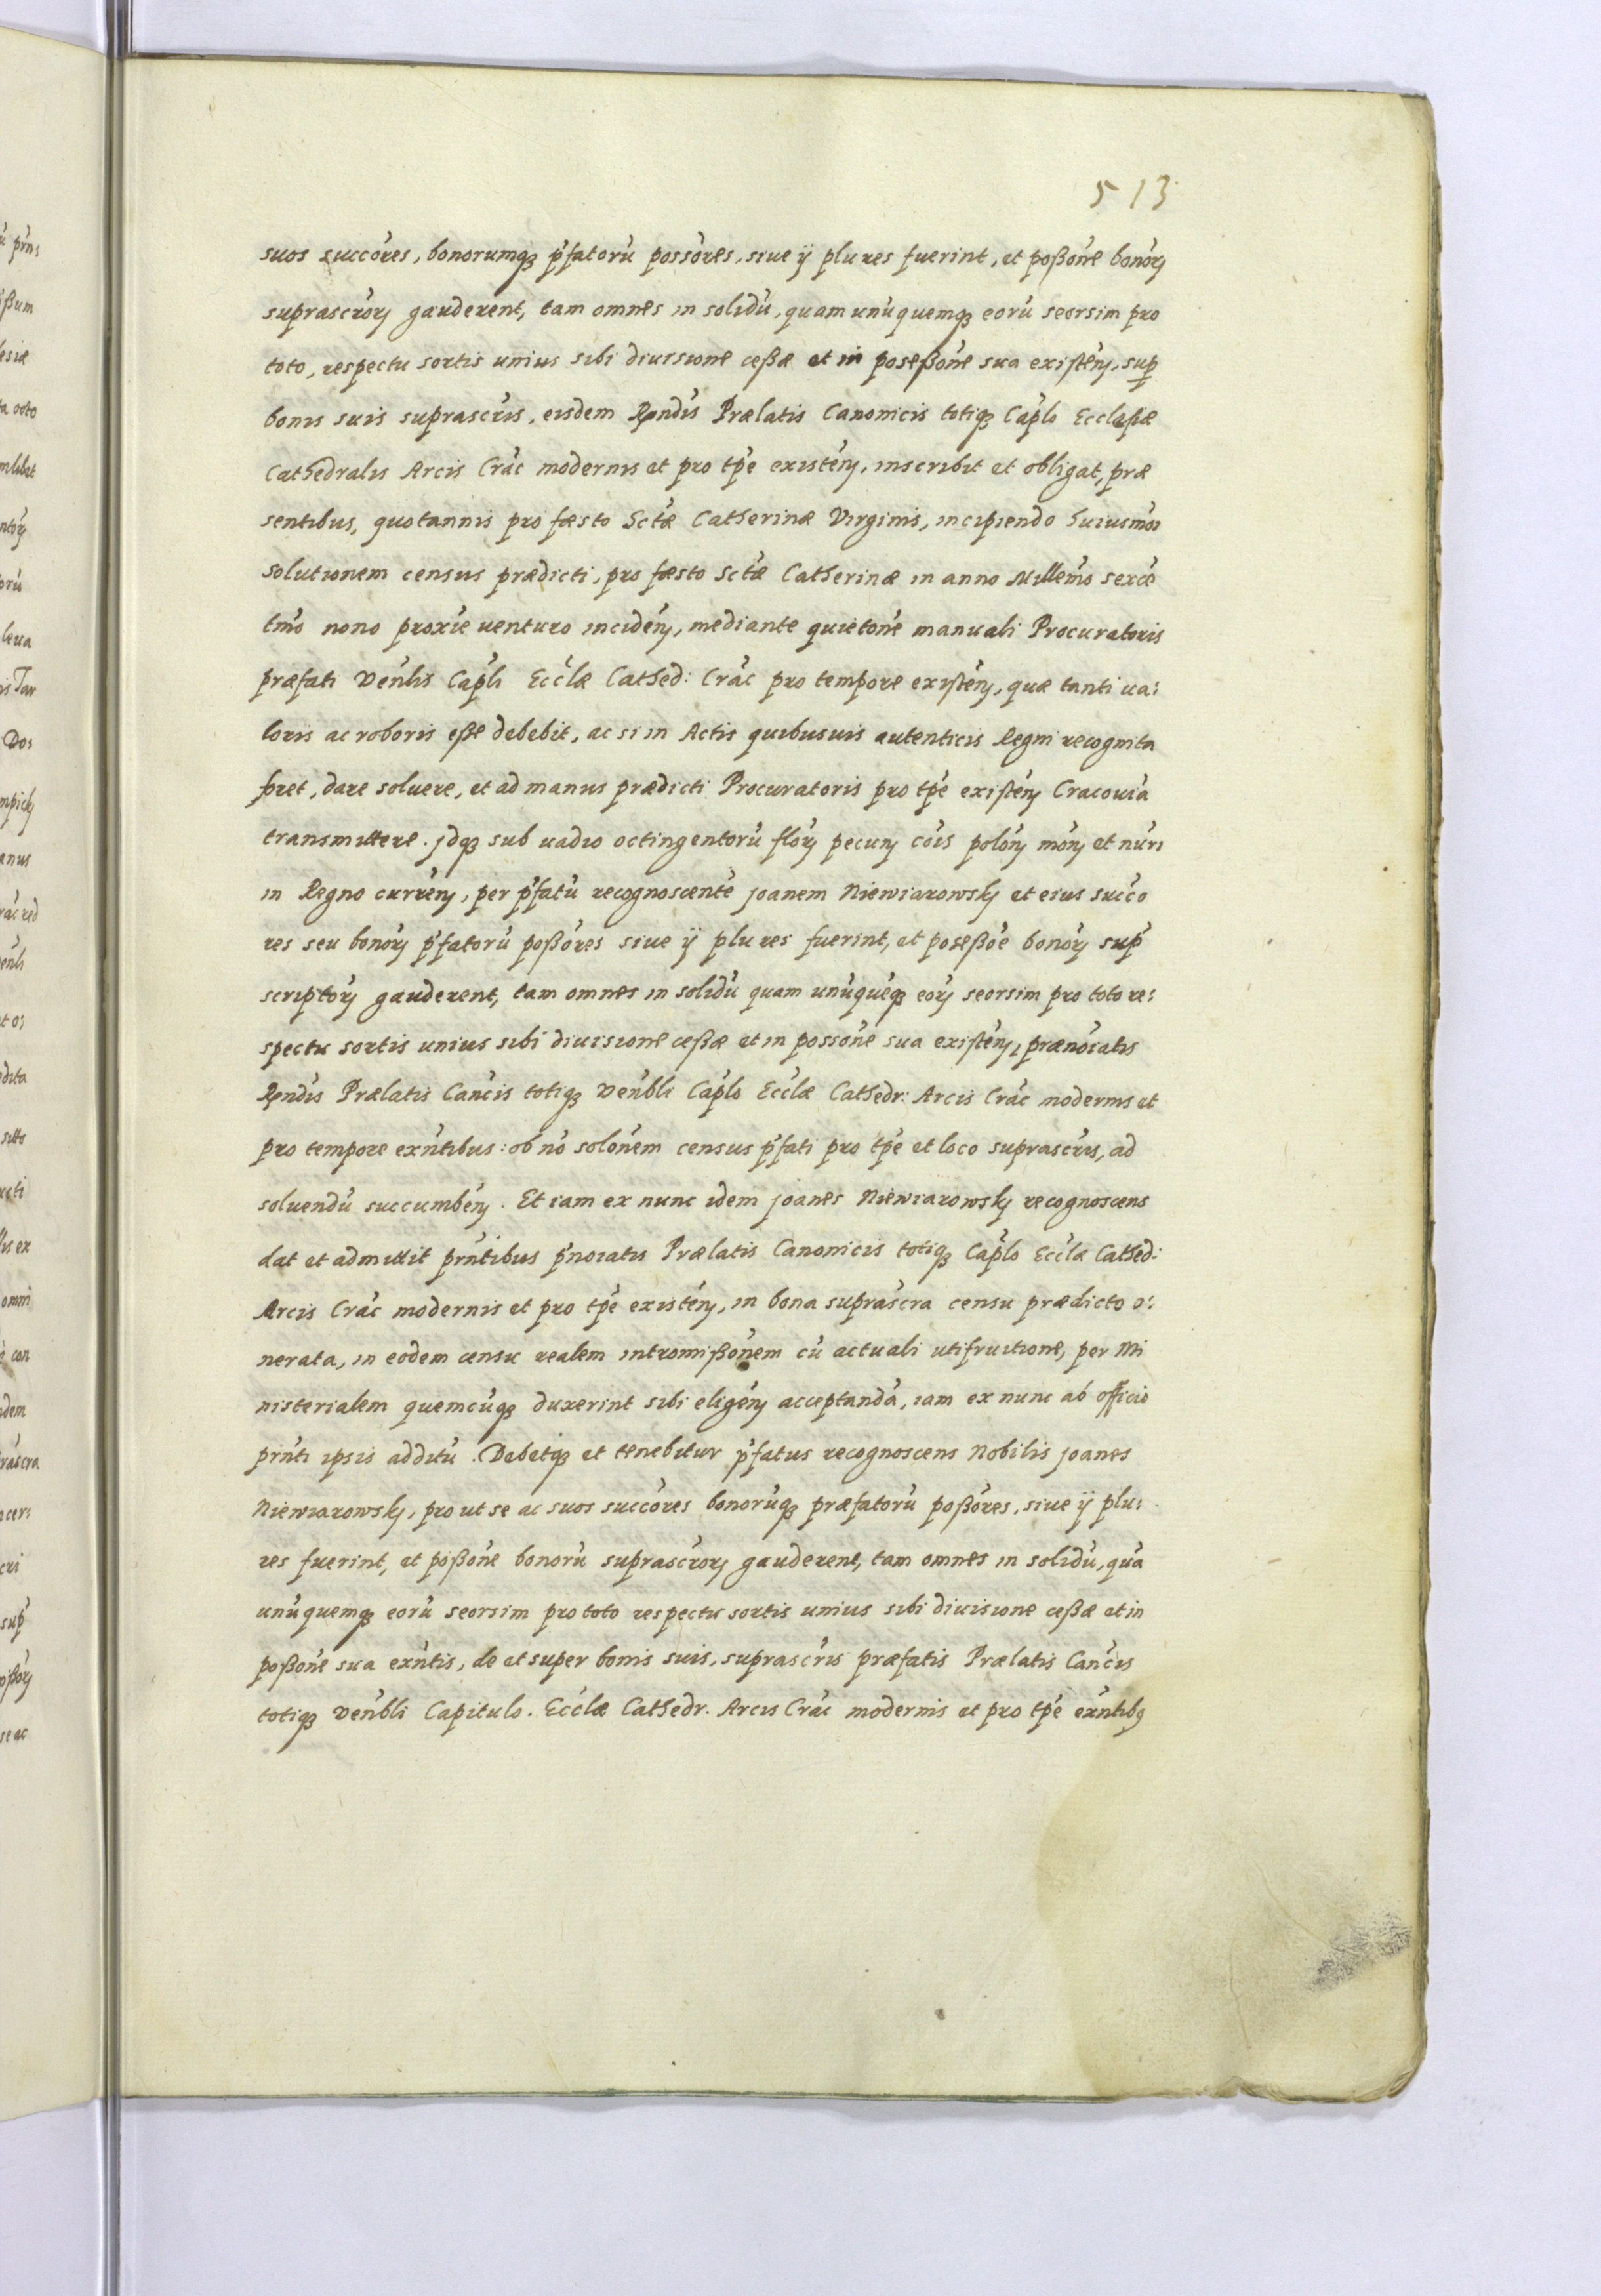 513
suos succóres, bonorumqꝫ p'fatorú possóres, siue ij plures fuerint, et poßóne bonóꝝ
suprascróꝝ gauderent, tam omnes in solidú, quam unúquemqꝫ eorú seorsim pro
toto, respectu sortis unius sibi diuisione ceßæ et in poseßóne sua existéɲ, suꝑ
bonis suis suprascris, eisdem Rɲdis Prælatis Canonicis totiqꝫ Cáplo Ecclesiæ
Cathedralis Arcis Crác modernis et pro tpé existéɲ, inscribit et obligat, præ
sentibus, quotannis pro fæsto Sctæ Catherinæ Virginis, incipiendo huiusmói
solutionem census prædicti, pro fæsto Sctæ Catherinæ in anno Millemó sexcé
tmó nono proxié uenturo incidéɲ, mediante quietóne manuali Procuratoris
præfati Venlis Cápli Ecclæ Cathed: Crác pro tempore existéɲ, quæ tanti ua:
loris ac roboris eße debebit, ac si in Actis quibusuis autenticis Regni recognita
foret, dare soluere, et ad manus prædicti Procuratoris pro tpé existéɲ Cracouiá
transmittere. jdqꝫ sub uadio octingentorú flóꝝ pecuɲ cóis polóɲ móɲ et núri
in Regno curréɲ, per p'fatú recognoscenté joanem Niewiarowskj et eius succo
res seu bonóꝝ p'fatorú poßóres siue ij plures fuerint, et poseßóe bonóꝝ sup'
scriptóꝝ gauderent, tam omnes in solidú quam unúquéqꝫ eoꝝ seorsim pro toto re:
spectu sortis unius sibi diuisione ceßæ et in possóne sua existéɲ, prænóiatis
Rɲdis Prælatis Cancis totiqꝫ Venbli Cáplo Ecclæ Cathedr: Arcis Crác modernis et
pro tempore exńtibus: ob nó solónem census p'fati pro tpé et loco suprascris, ad
soluendú succumbéɲ. Et iam ex nunc idem joanes Niewiarowskj recognoscens
dat et admittit prńtibus p'noiatis Prælatis Canonicis totiqꝫ Cáplo Ecclæ Cathed:
Arcis Crác modernis et pro tpé existéɲ, in bona suprascra censu prædicto o:
nerata, in eodem censu realem intromißónem cú actuali utifruitione, per Mi
nisterialem quemcúqꝫ duxerint sibi eligéɲ acceptandá, iam ex nunc ab officio
prńti ipsis additú. Debetqꝫ et tenebitur p'fatus recognoscens Nobilis joanes
Niewiarowskj, pro ut se ac suos succóres bonorúqꝫ præfatorú poßóres, siue ij plu:
res fuerint, et poßóne bonorú suprascróꝝ gauderent, tam omnes in solidú, quá
unúquemqꝫ eorú seorsim pro toto respectu sortis unius sibi diuisione ceßæ et in
poßóne sua exńtis, de et super bonis suis, suprascris præfatis Prælatis Cancis
totiqꝫ Venbli Capitulo. Ecclæ Cathedr. Arcis Crác modernis et pro tpé exńtibꝫ